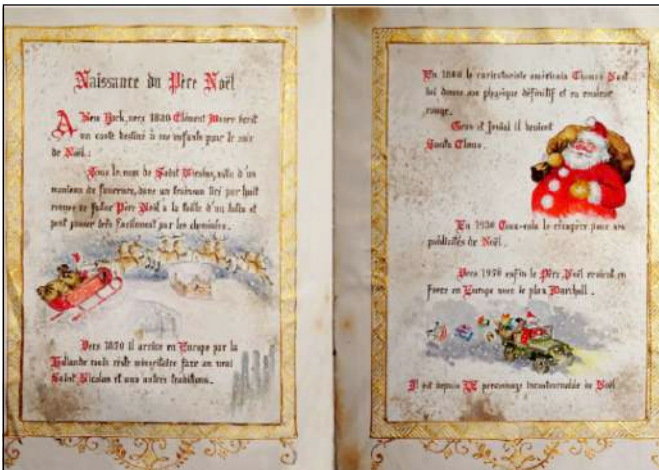 Naissance du Père Noël
A New York, vers 1820 Clément Moore écrit
un conte destiné à ses enfants pour le soir
de Noël :
Sous le nom de Saint Nicolas, vêtu d'un
manteau de fourrure, dans un traineau tiré par huit
rennes ce futur Père Noël à la taille d'un lutin et
peut passer très facilement par les cheminées.
Vers 1870 il arrive en Europe par la
Hollande mais reste minoritaire face au vrai
Saint Nicolas et aux autres traditions.
En 1860 le caricaturiste américain Thomas Nast
lui donne son physique définitif et sa couleur
rouge.
Gros et Jovial il devient
Santa Claus.
En 1930 Coca-cola le récupère pour ses
publicités de Noël.
Vers 1950 enfin le Père Noël revient en
force en Europe avec le plan Marshall.
Il est depuis LE personnage incontournable de Noël